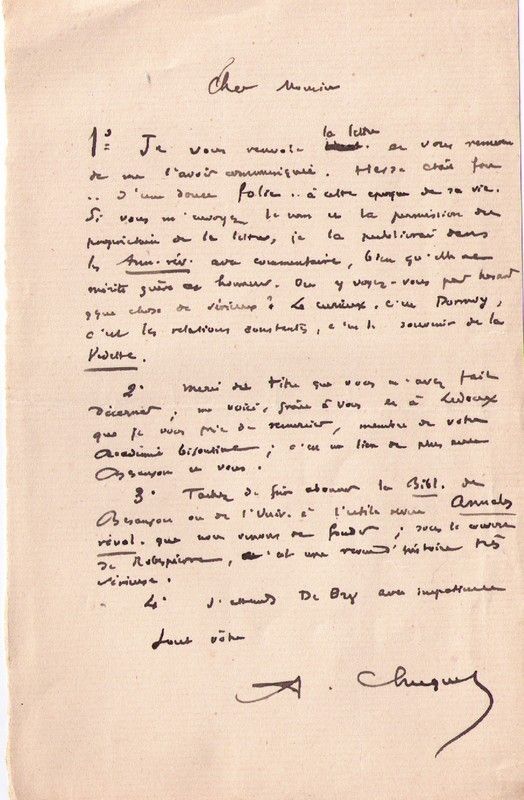 Cher Monsieur
1° Je vous renvoie la lettre et vous remercie
de me l'avoir communiquée. Hesse était fou
.. d'une douce folie .. à cette époque de sa vie.
Si vous m'envoyez le nom et la permission du
propriétaire de la lettre, je la publierai dans
les Ann. rév. avec commentaire, bien qu'elle ne
mérite guère cet honneur. Ou y voyez-vous par hasard
qque chose de sérieux? Le curieux, c'est
c'est les relations constantes, c'est le souvenir de la
Vedette.
2° Merci du titre que vous m'avez fait
décerner ; me voici, grâce à vous et à Ledoux
que je vous prie de remercier, membre de votre
Académie bisontine ; c'est un lien de plus avec
Besançon et vous.
3° Tachez de faire abonner la Bibl. de
Besançon ou de l'Univ. à l'utile revue Annales
révol. que nous venons de fonder ; sous le couvert
de Robespierre, c'est une revue d'histoire très
sérieuse.
4° J'attends De Bry avec impatience
Tout vôtre
A. Chuquet